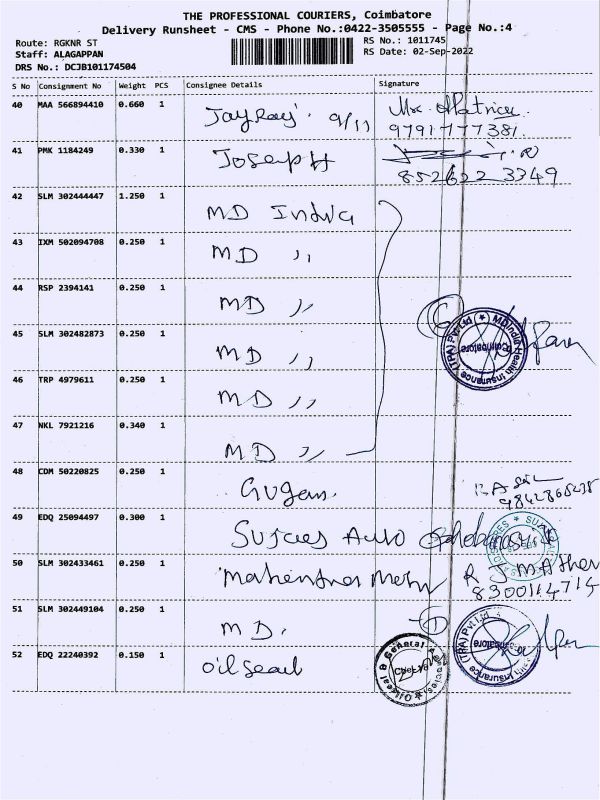 THE PROFESSIONAL COURIERS, Coimbatore
Delivery Runsheet - CMS - Phone No.:0422-3505555 - Page No.:4
Route: RGKNR ST
RS No.: 1011745
Staff: ALAGAPPAN
RS Date: 02-Sep-2022
DRS No.: DCJB101174504
S No Consignment No Weight PCS Consignee Details Signature
40 MAA 566894410 0.660 1 Jayraj. 9/11 Mr.
9791777381
41 PMK 1184249 0.330 1 Joseph
852622 3349
42 SLM 302444447 1.250 1 MD India
43 IXM 502094708 0.250 1 MD ,,
44 RSP 2394141 0.250 1 MD ,,
MDIndia Health Insurance (TPA) Pvt Ltd Coimbatore
45 SLM 302482873 0.250 1 MD ,,
46 TRP 4979611 0.250 1 MD ,,
47 NKL 7921216 0.340 1 MD ,,
48 CDM 50220825 0.250 1 Gugan
49 EDQ 25094497 0.300 1 Auto
50 SLM 302433461 0.250 1 Mahendra R J
8300114714
51 SLM 302449104 0.250 1 MD.
Health Insurance (TPA) Pvt Ltd
52 EDQ 22240392 0.150 1 oil seal
Oilseal & General Agencies